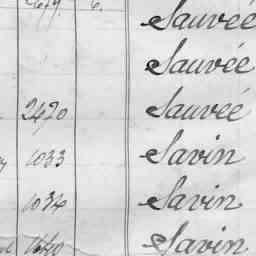 Sauvée
Sauvée
2420 Sauvée
1033 Savin
1034 Savin
1640 Savin